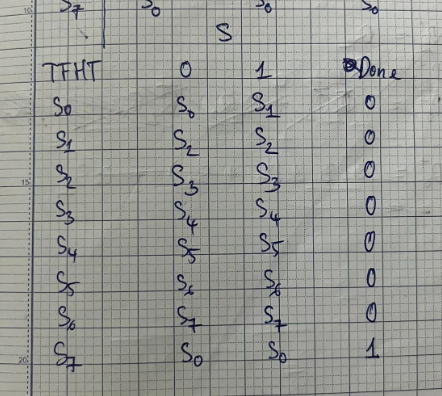 S7 S0 S0 S0
S
TFHT 0 1 Done
S0 S0 S1 0
S1 S2 S2 0
S2 S3 S3 0
15
S3 S4 S4 0
S4 S5 S5 0
S5 S6 S6 0
S6 S7 S7 0
S7 S0 S0 1
20